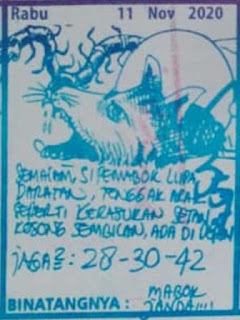 Rabu 11 Nov 2020
SEMALAM, SI PEMABOK LUPA
DARATAN, TONGGAK ARAK
SEPERTI KERASUKAN SETAN
KOSONG SEMBILAN, ADA DI DEPAN
JAGA2: 28-30-42
BINATANGNYA : MABOK
JANDA!!!